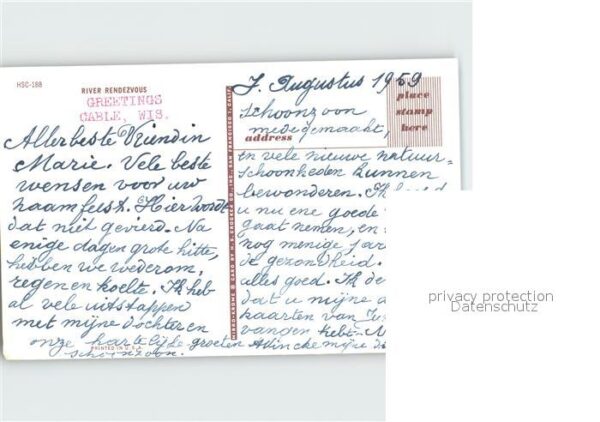 HSC-188
RIVER RENDEZVOUS
GREETINGS
CABLE, WIS.
Allerbeste Vriendin
Marie. Vele beste
wensen voor uw
naamfeest. Hier wordt
dat niet gevierd. Na
enige dagen grote hitte,
hebben we wederom,
regen en koelte. Ik heb
al vele uitstappen
met mijne dochter en
schoonzoon.
7. Augustus 1959
place
stamp
here
Schoonzoon
medegemaakt,
address
en vele nieuwe natuur-
schoonheden kunnen
bewonderen. Ik
u nu ene goede
gaat nemen, en
nog menige jar
de gezondheid.
alles goed. Ik de
dat u mijne
kaarten van
vangen hebt.
onze hartelijke groeten
mijne
PRINTED IN U.S.A.
MIRRO-KROME ® CARD BY H. S. CROCKER CO., INC., SAN FRANCISCO 1, CALIF.
privacy protection
Datenschutz